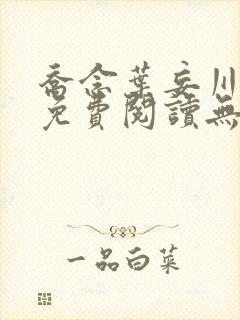 喬念葉妄川
免費閱讀無
一品白菜